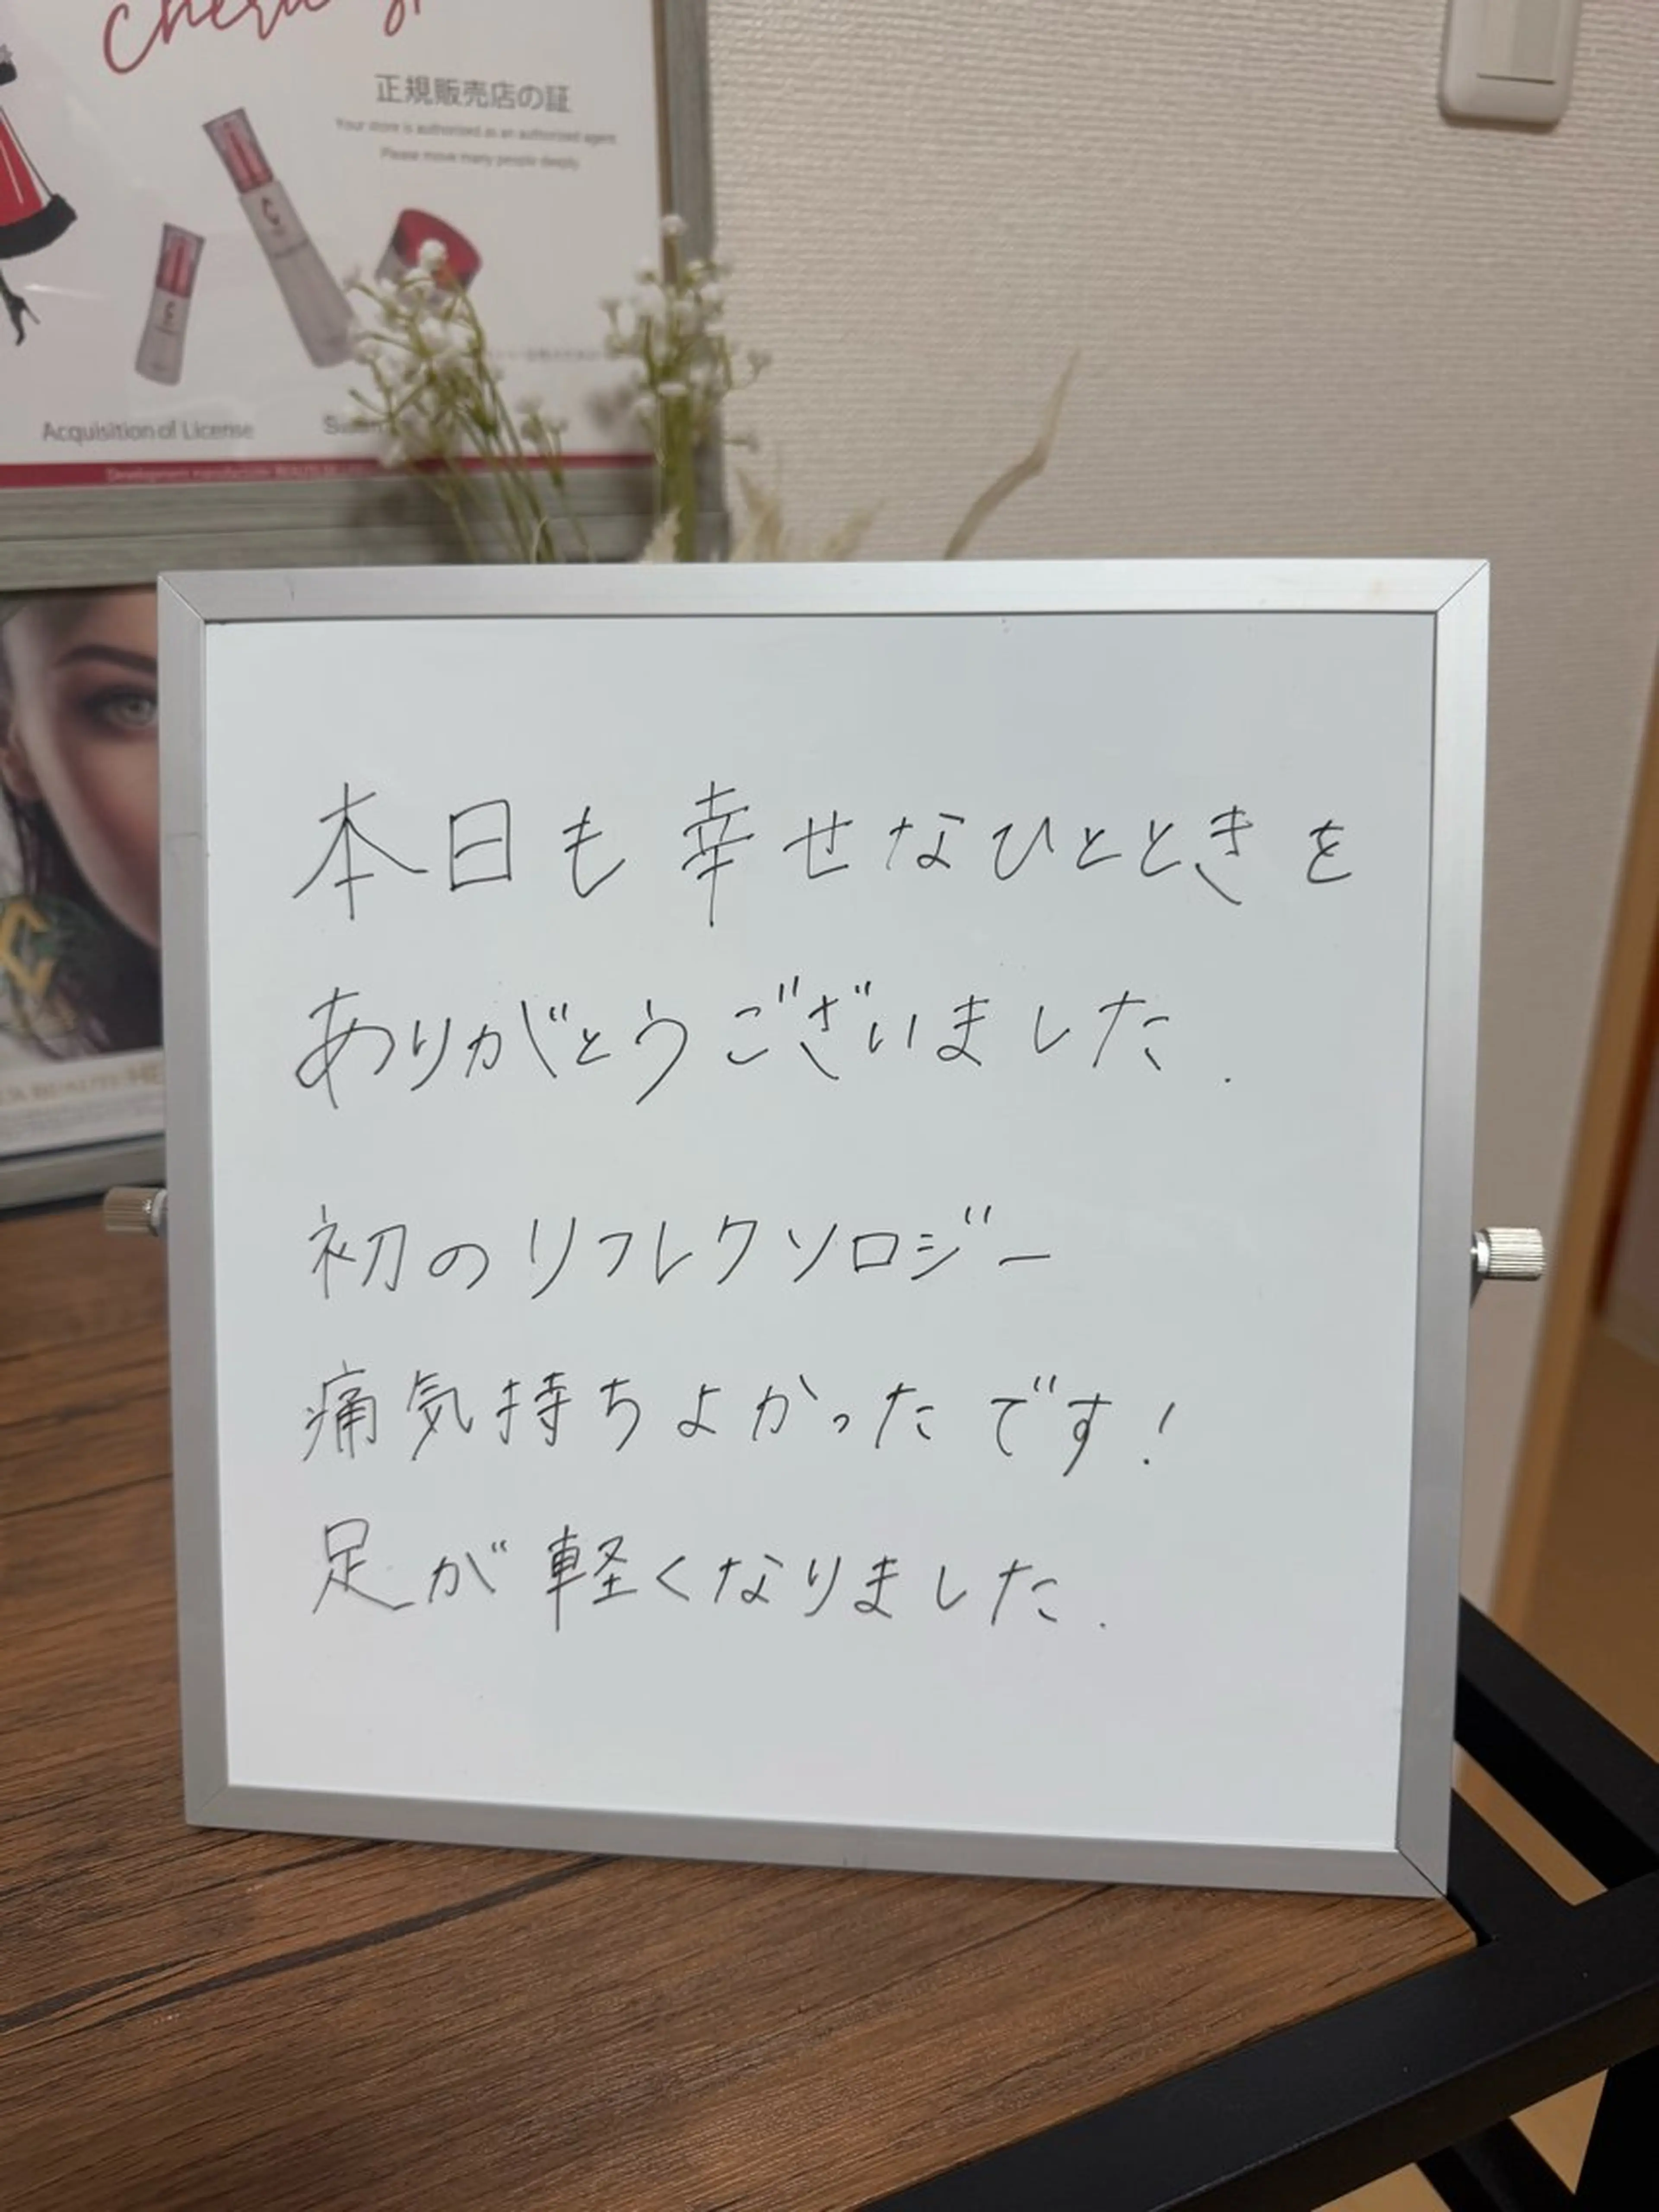 正規販売店の証
Your store is authorized as an authorized agent.
Please move many people deeply.
Acquisition of License
本日も幸せなひとときを
ありがとうございました.
初のリフレクソロジー
痛気持ちよかったです!
足が軽くなりました.